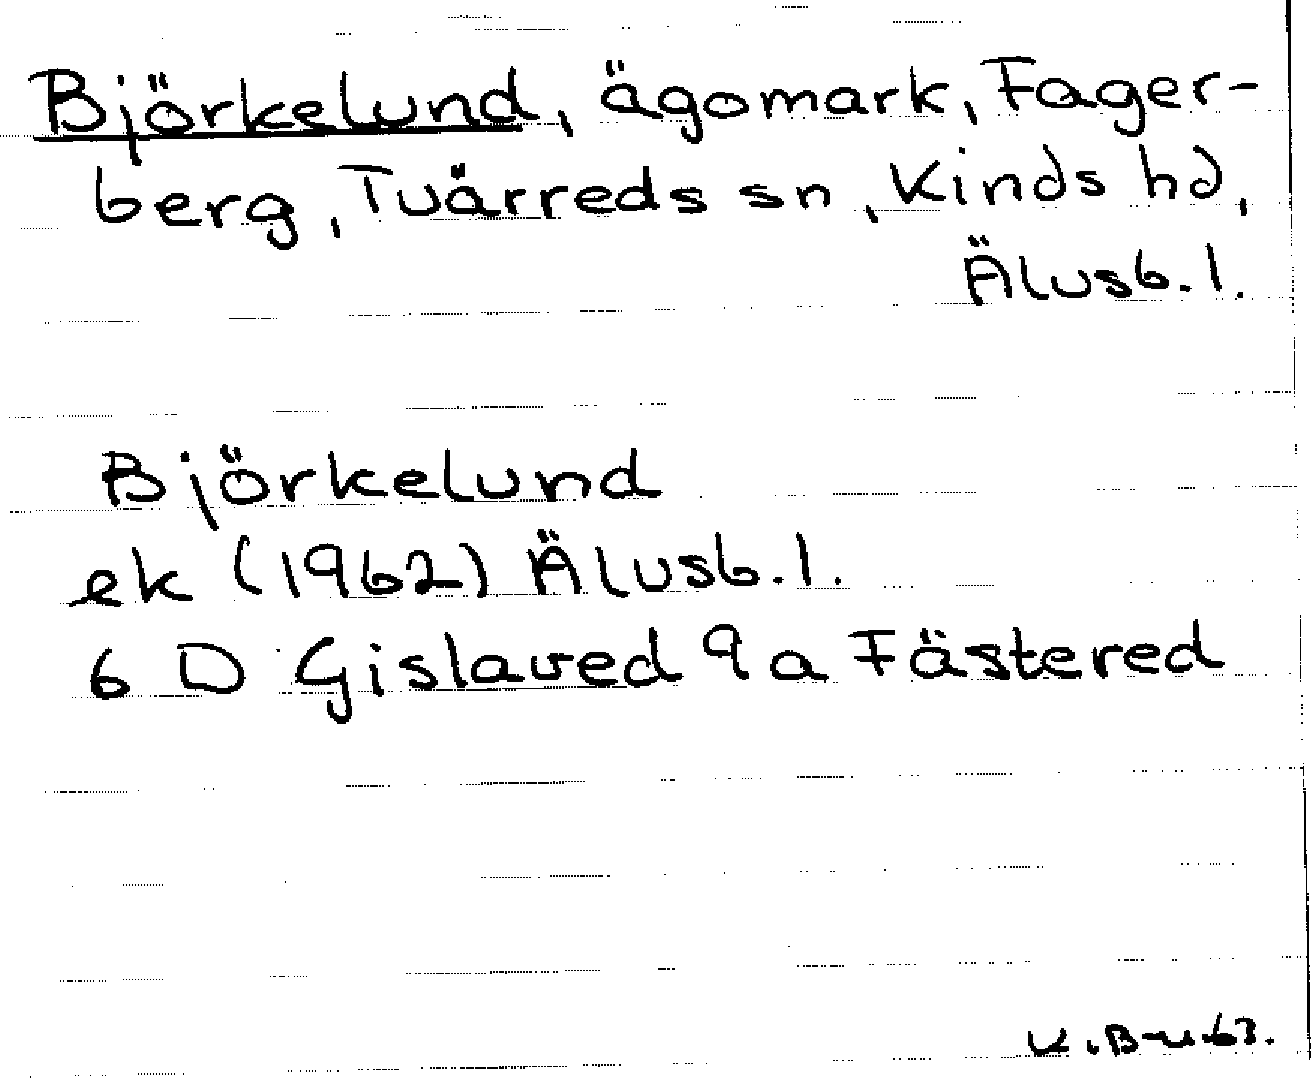 Björkelund, ägomark, Fager-
berg, Tvärreds sn, Kinds hd,
Älvsb. l.
Björkelund
ek (1962) Älvsb. l.
6 D Gislaved 9a Fästered
K. B-n 63.